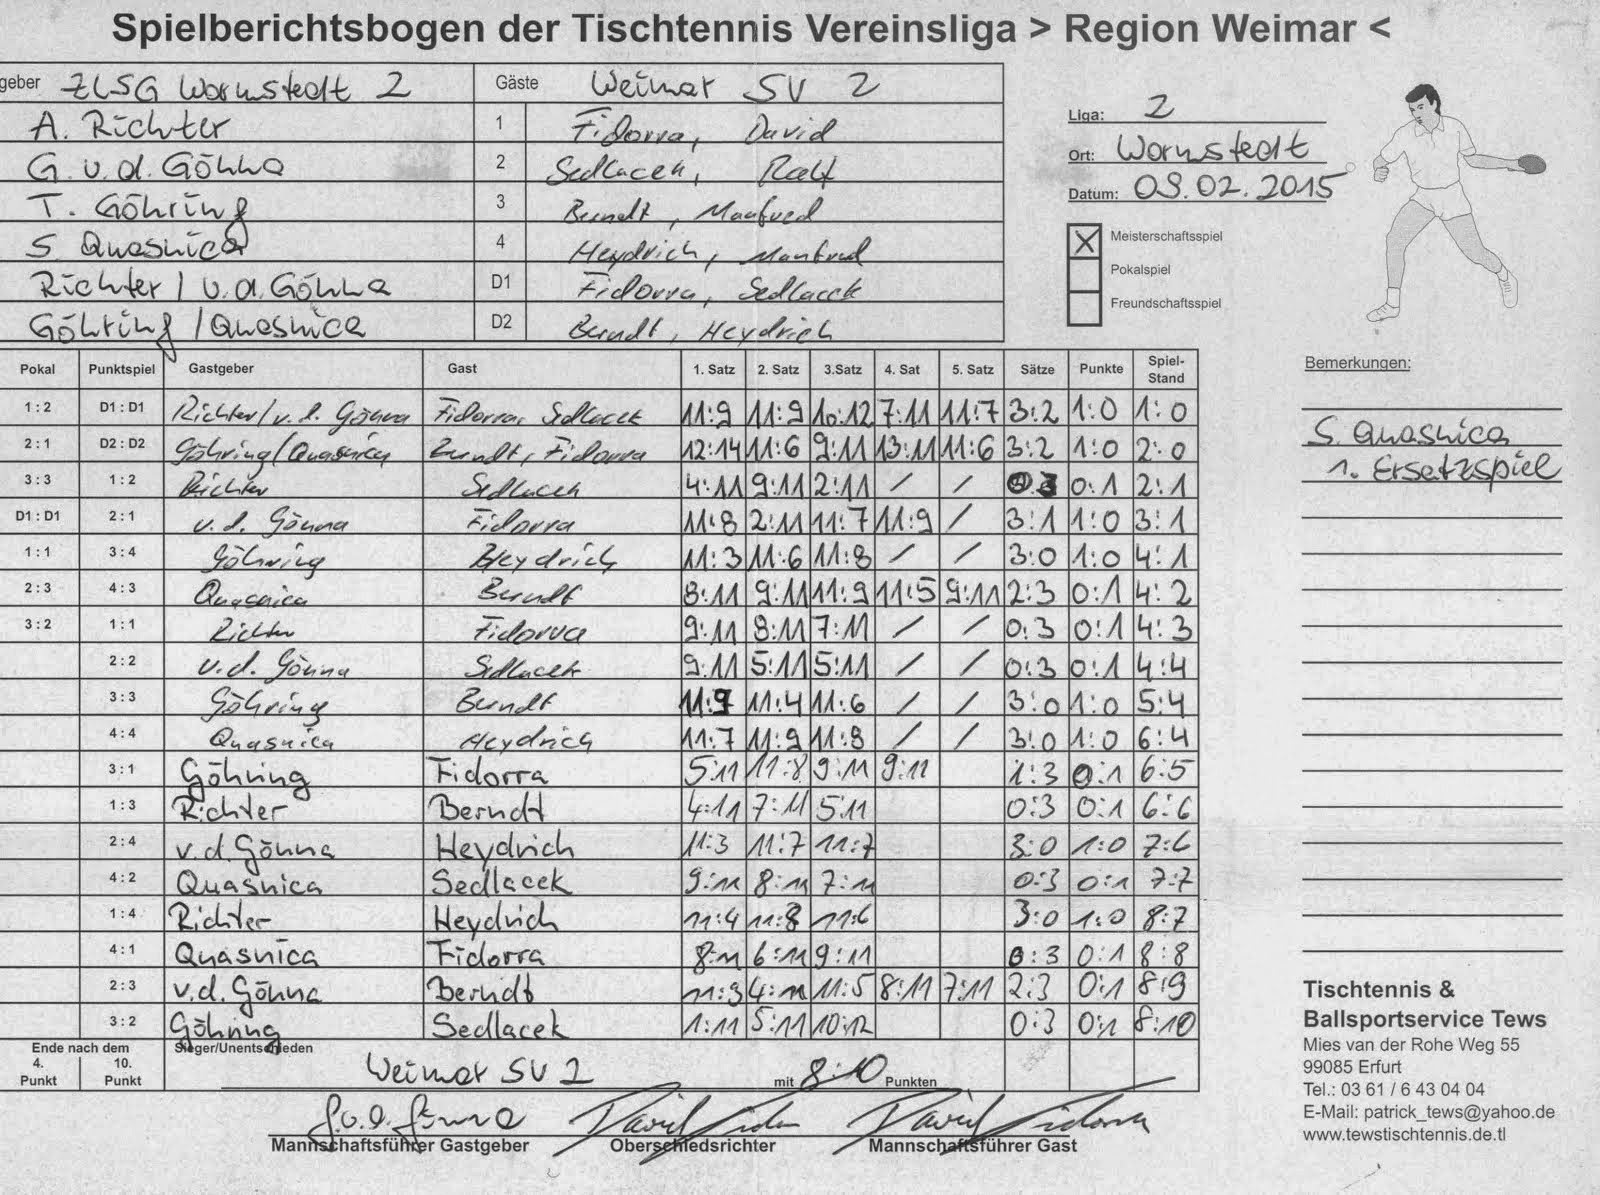 Spielberichtsbogen der Tischtennis Vereinsliga > Region Weimar <
geber ZLSG Wormstedt 2 Gäste Weimar SV 2
A. Richter 1 Fidorra, David
G. v. d. Gönna 2 Sedlacek, Ralf
T. Göhring 3 Berndt, Manfred
S. Quasnica 4 Heydrich, Manfred
Richter / v.d. Gönna D1 Fidorra, Sedlacek
Göhring / Quasnica D2 Berndt, Heydrich
Liga: 2
Ort: Wormstedt
Datum: 09.02.2015
X Meisterschaftsspiel
Pokalspiel
Freundschaftsspiel
Pokal Punktspiel Gastgeber Gast 1. Satz 2. Satz 3.Satz 4. Sat 5. Satz Sätze Punkte Spiel-Stand
1 : 2 D1 : D1 Richter/v.d. Gönna Fidorra, Sedlacek 11:9 11:9 10:12 7:11 11:7 3:2 1:0 1:0
2 : 1 D2 : D2 Göhring/Quasnica Berndt, Fidorra 12:14 11:6 9:11 13:11 11:6 3:2 1:0 2:0
3 : 3 1 : 2 Richter Sedlacek 4:11 9:11 2:11 / / 0:3 0:1 2:1
D1 : D1 2 : 1 v.d. Gönna Fidorra 11:8 2:11 11:7 11:9 / 3:1 1:0 3:1
1 : 1 3 : 4 Göhring Heydrich 11:3 11:6 11:8 / / 3:0 1:0 4:1
2 : 3 4 : 3 Quasnica Berndt 8:11 9:11 11:9 11:5 9:11 2:3 0:1 4:2
3 : 2 1 : 1 Richter Fidorra 9:11 8:11 7:11 / / 0:3 0:1 4:3
2 : 2 v.d. Gönna Sedlacek 9:11 5:11 5:11 / / 0:3 0:1 4:4
3 : 3 Göhring Berndt 11:9 11:4 11:6 / / 3:0 1:0 5:4
4 : 4 Quasnica Heydrich 11:7 11:9 11:8 / / 3:0 1:0 6:4
3 : 1 Göhring Fidorra 5:11 11:8 9:11 9:11 1:3 0:1 6:5
1 : 3 Richter Berndt 4:11 7:11 5:11 0:3 0:1 6:6
2 : 4 v.d. Gönna Heydrich 11:3 11:7 11:7 3:0 1:0 7:6
4 : 2 Quasnica Sedlacek 9:11 8:11 7:11 0:3 0:1 7:7
1 : 4 Richter Heydrich 11:4 11:8 11:6 3:0 1:0 8:7
4 : 1 Quasnica Fidorra 8:11 6:11 9:11 0:3 0:1 8:8
2 : 3 v.d. Gönna Berndt 11:9 4:11 11:5 8:11 7:11 2:3 0:1 8:9
3 : 2 Göhring Sedlacek 1:11 5:11 10:12 0:3 0:1 8:10
Ende nach dem Sieger/Unentschieden
4. Punkt 10. Punkt Weimar SV 2 mit 8:10 Punkten
G.v.d. Gönna David Fidorra David Fidorra
Mannschaftsführer Gastgeber Oberschiedsrichter Mannschaftsführer Gast
Bemerkungen:
S. Quasnica
1. Ersatzspiel
Tischtennis &
Ballsportservice Tews
Mies van der Rohe Weg 55
99085 Erfurt
Tel.: 03 61 / 6 43 04 04
E-Mail: patrick_tews@yahoo.de
www.tewstischtennis.de.tl